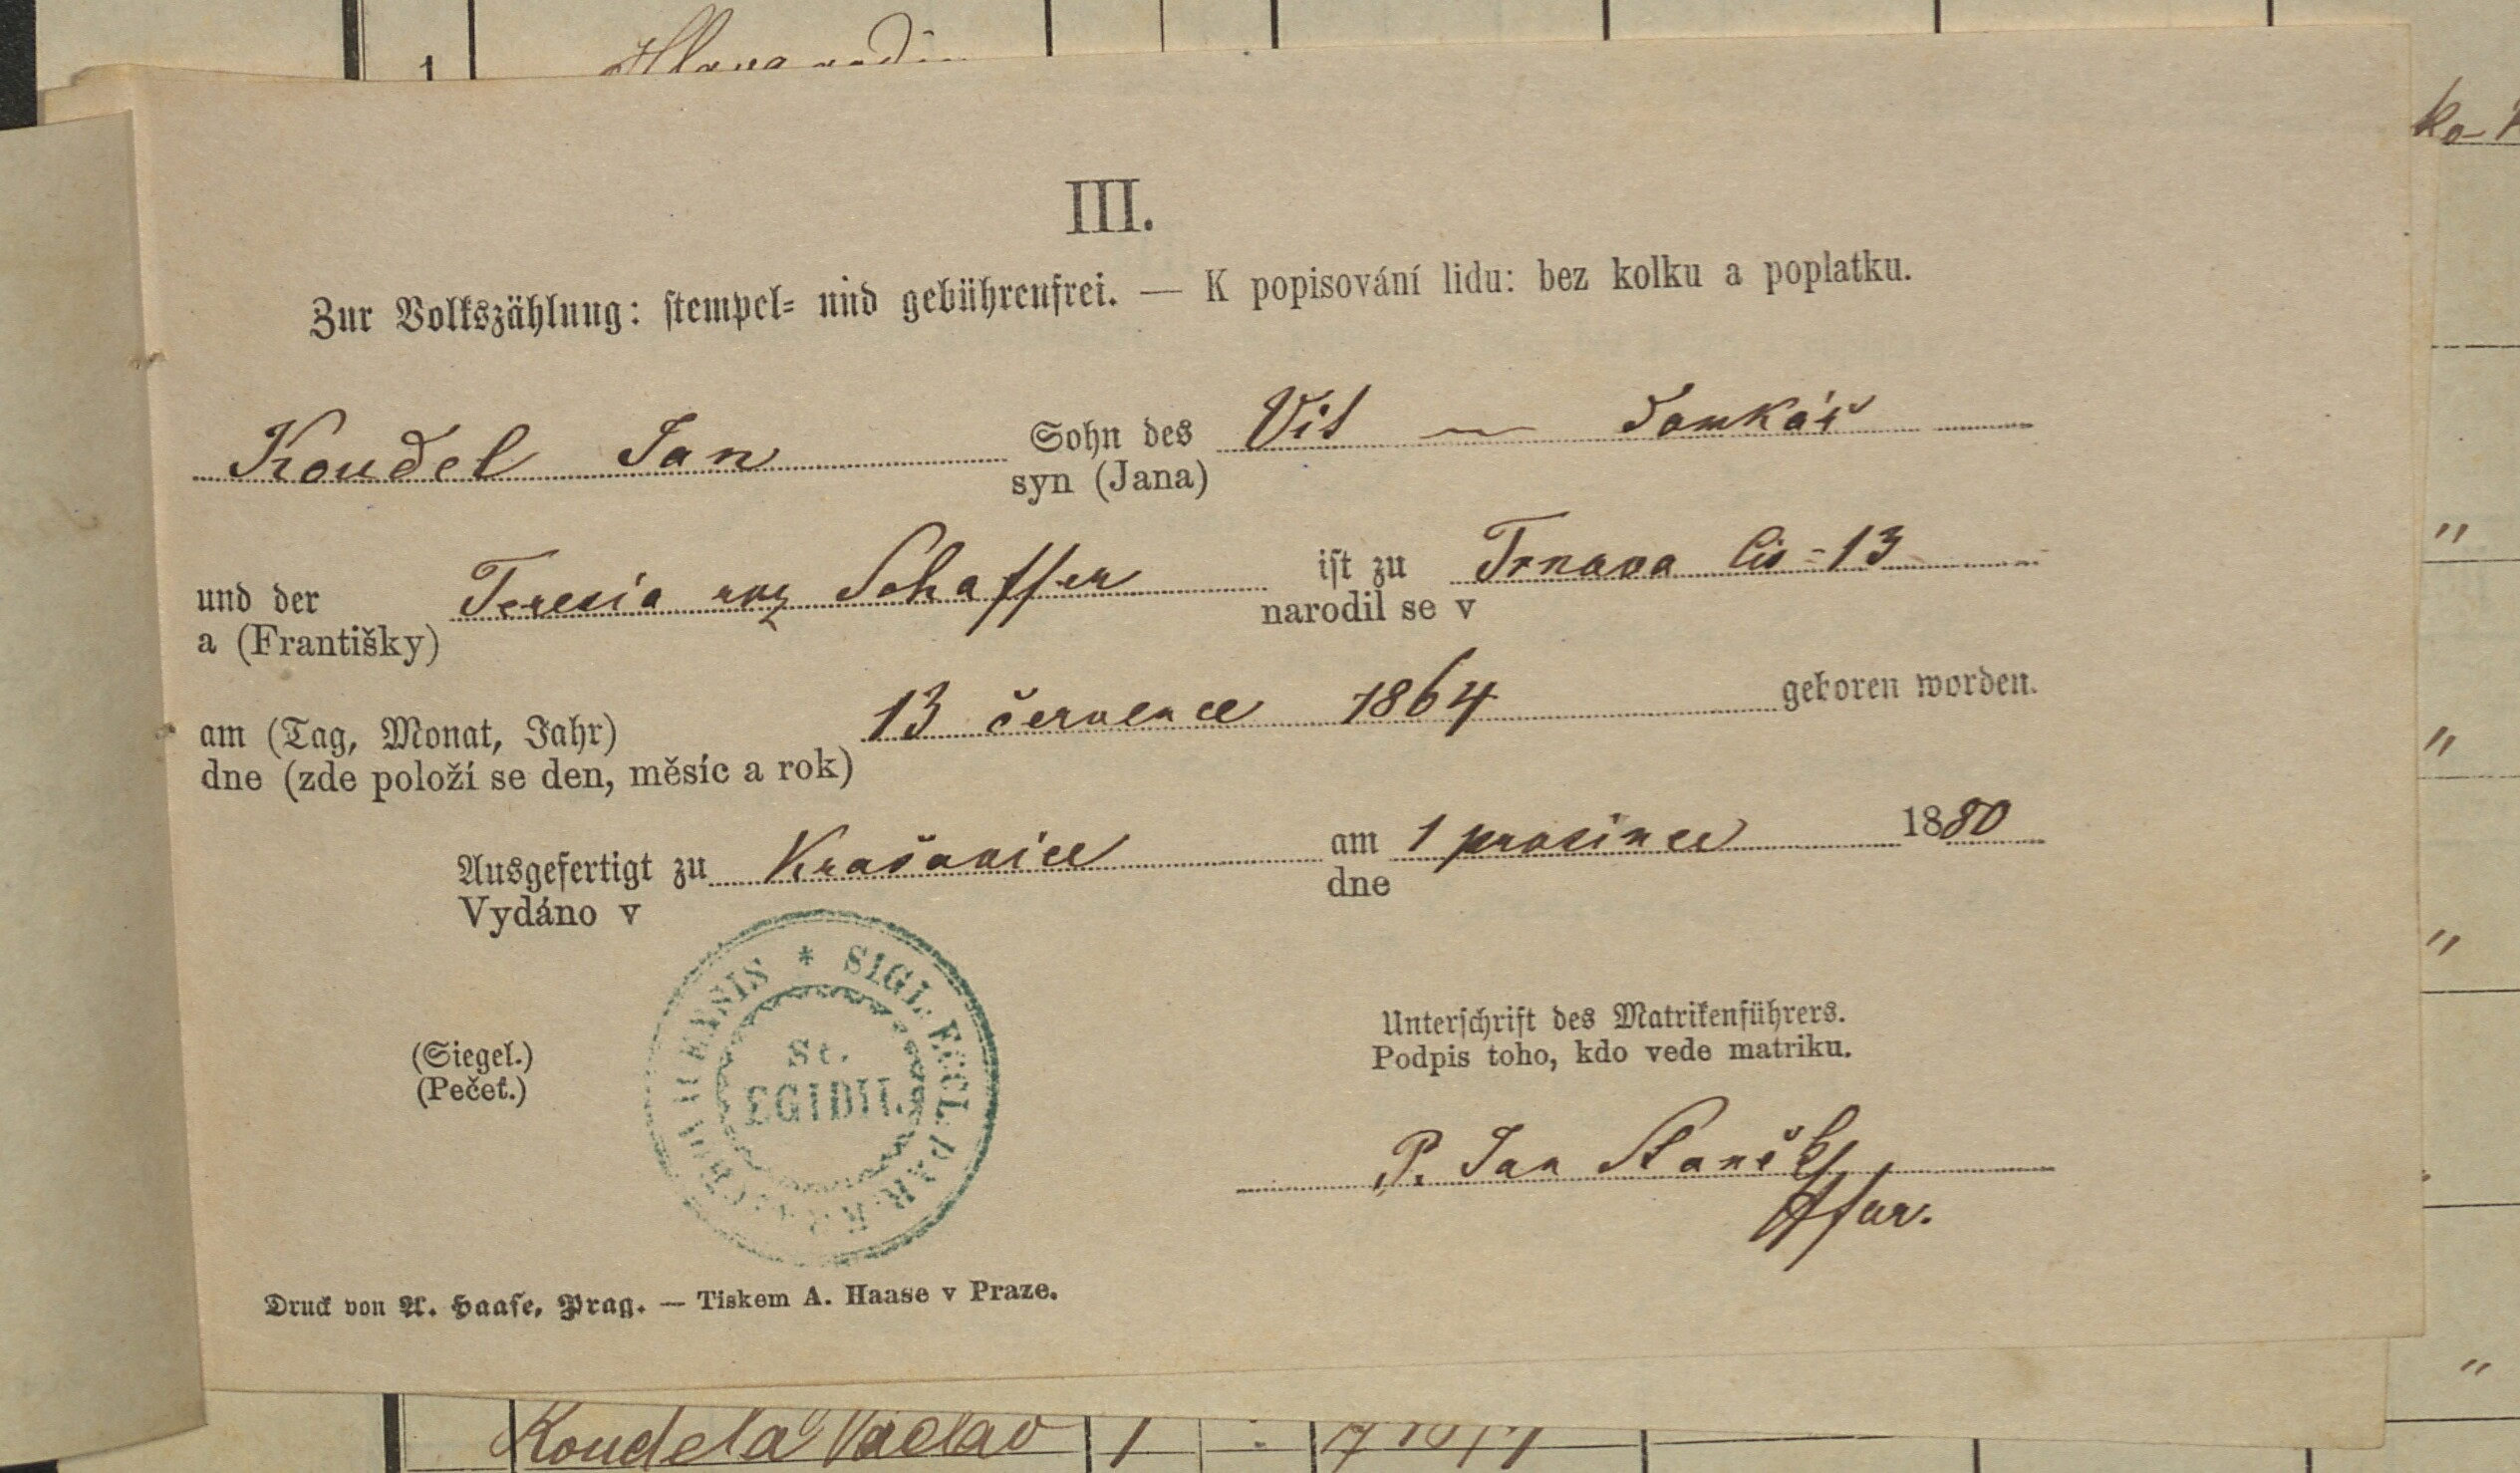 1
III.
Zur Volkszählung: stempel- und gebührenfrei. — K popisování lidu: bez kolku a poplatku.
Koudel Jan Sohn des Vit
syn (Jana)
und der Teresia roz Schaffer ist zu Trnava čis 13
a (Františky) narodil se v
am (Tag, Monat, Jahr) 13 července 1864 geboren worden.
dne (zde položí se den, měsíc a rok)
Ausgefertigt zu am 1 prosince 1880
Vydáno v dne
* SIGL. ECCL. PAR.
St.
EGIDII.
(Siegel.)
(Pečeť.)
Unterschrift des Matrikenführers.
Podpis toho, kdo vede matriku.
P. Jan Staněk
ffar.
Druck von A. Haase, Prag. — Tiskem A. Haase v Praze.
Koudela Václav 1